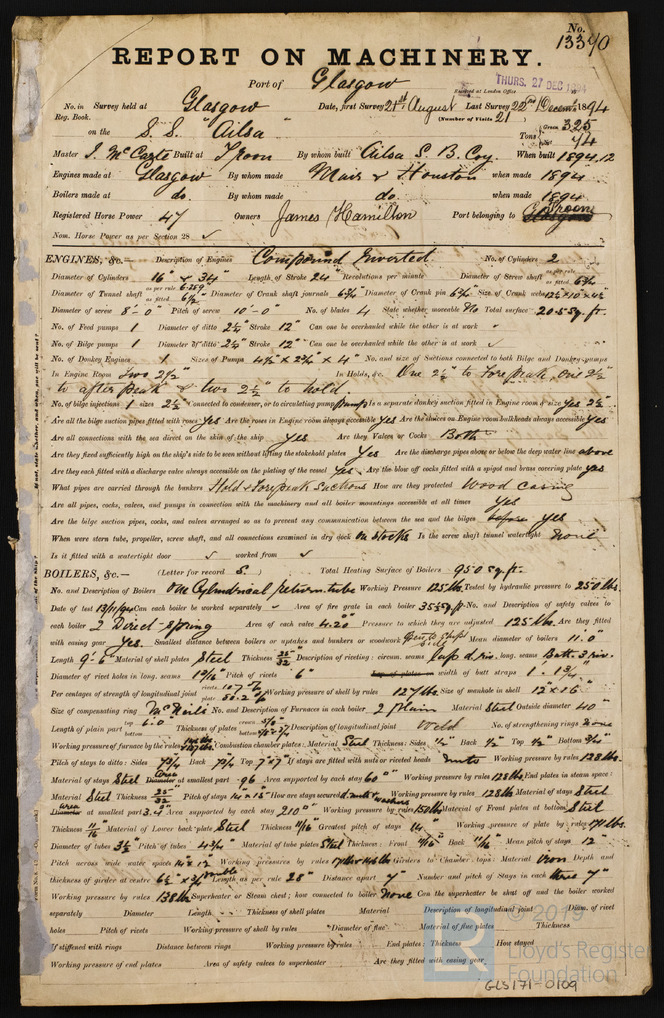 No. 13390
REPORT ON MACHINERY.
Port of Glasgow
THURS. 27 DEC 1894
Received at London Office
No. in Survey held at Glasgow Date, first Survey 21st August Last Survey 22nd Decem 1894
Reg. Book. (Number of Visits 21)
on the S.S. "Ailsa" Tons Gross 325
Master J. McCaxte Built at Troon By whom built Ailsa S. B. Coy. When built 1894.12
Engines made at Glasgow By whom made Muir & Houston when made 1894
Boilers made at do. By whom made do. when made 1894
Registered Horse Power 47 Owners James Hamilton Port belonging to Troon
Nom. Horse Power as per Section 28
ENGINES, &c.— Description of Engines Compound Inverted No. of Cylinders 2
Diameter of Cylinders 16" & 34" Length of Stroke 24" Revolutions per minute Diameter of Screw shaft as per rule as fitted 6¾
Diameter of Tunnel shaft as per rule 6.259" as fitted 6½" Diameter of Crank shaft journals 6¾" Diameter of Crank pin 6¾" Size of Crank webs
Diameter of screw 8'-0" Pitch of screw 10'-0" No. of blades 4 State whether moveable No Total surface 20.5 sq. ft.
No. of Feed pumps 1 Diameter of ditto 2½" Stroke 12" Can one be overhauled while the other is at work
No. of Bilge pumps 1 Diameter of ditto 2½" Stroke 12" Can one be overhauled while the other is at work
No. of Donkey Engines 1 Sizes of Pumps No. and size of Suctions connected to both Bilge and Donkey pumps
In Engine Room Two 2½" In Holds, &c. One 2½" to Forepeak, one 2½"
to after peak & two 2½" to hold
No. of bilge injections 1 sizes 2½" Connected to condenser, or to circulating pump pump Is a separate donkey suction fitted in Engine room & size yes 2½"
Are all the bilge suction pipes fitted with roses yes Are the roses in Engine room always accessible yes Are the sluices on Engine room bulkheads always accessible yes
Are all connections with the sea direct on the skin of the ship yes Are they Valves or Cocks Both
Are they fixed sufficiently high on the ship's side to be seen without lifting the stokehold plates Yes Are the discharge pipes above or below the deep water line above
Are they each fitted with a discharge valve always accessible on the plating of the vessel Yes Are the blow off cocks fitted with a spigot and brass covering plate yes
What pipes are carried through the bunkers Hold & Forepeak Suctions How are they protected Wood casing
Are all pipes, cocks, valves, and pumps in connection with the machinery and all boiler mountings accessible at all times yes
Are the bilge suction pipes, cocks, and valves arranged so as to prevent any communication between the sea and the bilges yes
When were stern tube, propeller, screw shaft, and all connections examined in dry dock on stocks Is the screw shaft tunnel watertight none
Is it fitted with a watertight door worked from
BOILERS, &c.— (Letter for record S.) Total Heating Surface of Boilers 950 sq. ft.
No. and Description of Boilers One Cylindrical return tube Working Pressure 125 lbs. Tested by hydraulic pressure to 250 lbs.
Date of test 13/11/94 Can each boiler be worked separately Area of fire grate in each boiler 35 sq ft. No. and Description of safety valves to
each boiler 2 Direct-spring Area of each valve 4.20" Pressure to which they are adjusted 125 lbs. Are they fitted
with easing gear yes. Smallest distance between boilers or uptakes and bunkers or woodwork Mean diameter of boilers 11.0"
Length 9'-6" Material of shell plates Steel Thickness 25/32 Description of riveting: circum. seams Lap d. riv. long. seams Butt 3 riv.
Diameter of rivet holes in long. seams Pitch of rivets 6" width of butt straps 1' 1¾"
Per centages of strength of longitudinal joint Working pressure of shell by rules 127 lbs. Size of manhole in shell 12 x 16"
Size of compensating ring McNeils No. and Description of Furnaces in each boiler 2 Plain Material Steel Outside diameter 40"
Length of plain part top 6.0" bottom Thickness of plates crown bottom Description of longitudinal joint Weld No. of strengthening rings none
Working pressure of furnace by the rules Combustion chamber plates: Material Steel Thickness: Sides ½" Back ½" Top ½" Bottom
Pitch of stays to ditto: Sides Back Top 7" x 7" If stays are fitted with nuts or riveted heads nuts Working pressure by rules 128 lbs.
Material of stays Steel Area at smallest part .96 Area supported by each stay 60" Working pressure by rules 128 lbs End plates in steam space:
Material Steel Thickness 25/32 Pitch of stays 14" x 15" How are stays secured d. nuts & washers Working pressure by rules 128 lb Material of stays Steel
area at smallest part 3.4" Area supported by each stay 210" Working pressure by rules 150 lbs Material of Front plates at bottom Steel
Thickness 11/16 Material of Lower back plate Steel Thickness 11/16" Greatest pitch of stays 14" Working pressure of plate by rules 171 lbs.
Diameter of tubes 3½ Pitch of tubes Material of tube plates Steel Thickness: Front 11/16" Back 11/16" Mean pitch of stays 12
Pitch across wide water spaces 14" x 12" Working pressures by rules Girders to Chamber tops: Material Iron Depth and
thickness of girder at centre Length as per rule 28" Distance apart 7" Number and pitch of Stays in each three 7"
Working pressure by rules 138 lbs Superheater or Steam chest; how connected to boiler None Can the superheater be shut off and the boiler worked
separately Diameter Length Thickness of shell plates Material Description of longitudinal joint Diam. of rivet
holes Pitch of rivets Working pressure of shell by rules Diameter of flue Material of flue plates Thickness
If stiffened with rings Distance between rings Working pressure by rules End plates: Thickness How stayed
Working pressure of end plates Area of safety valves to superheater Are they fitted with easing gear
© 2019
Lloyd's Register
Foundation
GLS171-0109